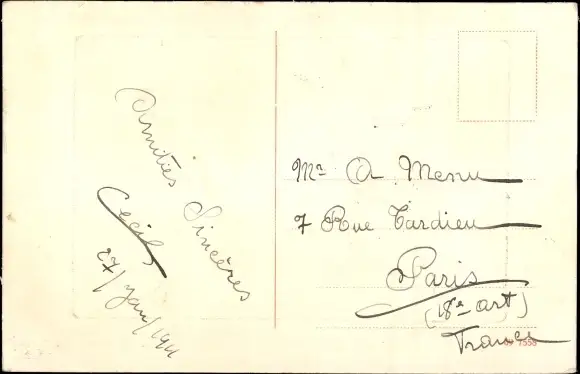 Amitiés Sincères
Cecil
27/Jan/1911
Mr A Menu
7 Rue Tardieu
Paris
(18e art)
France
7558